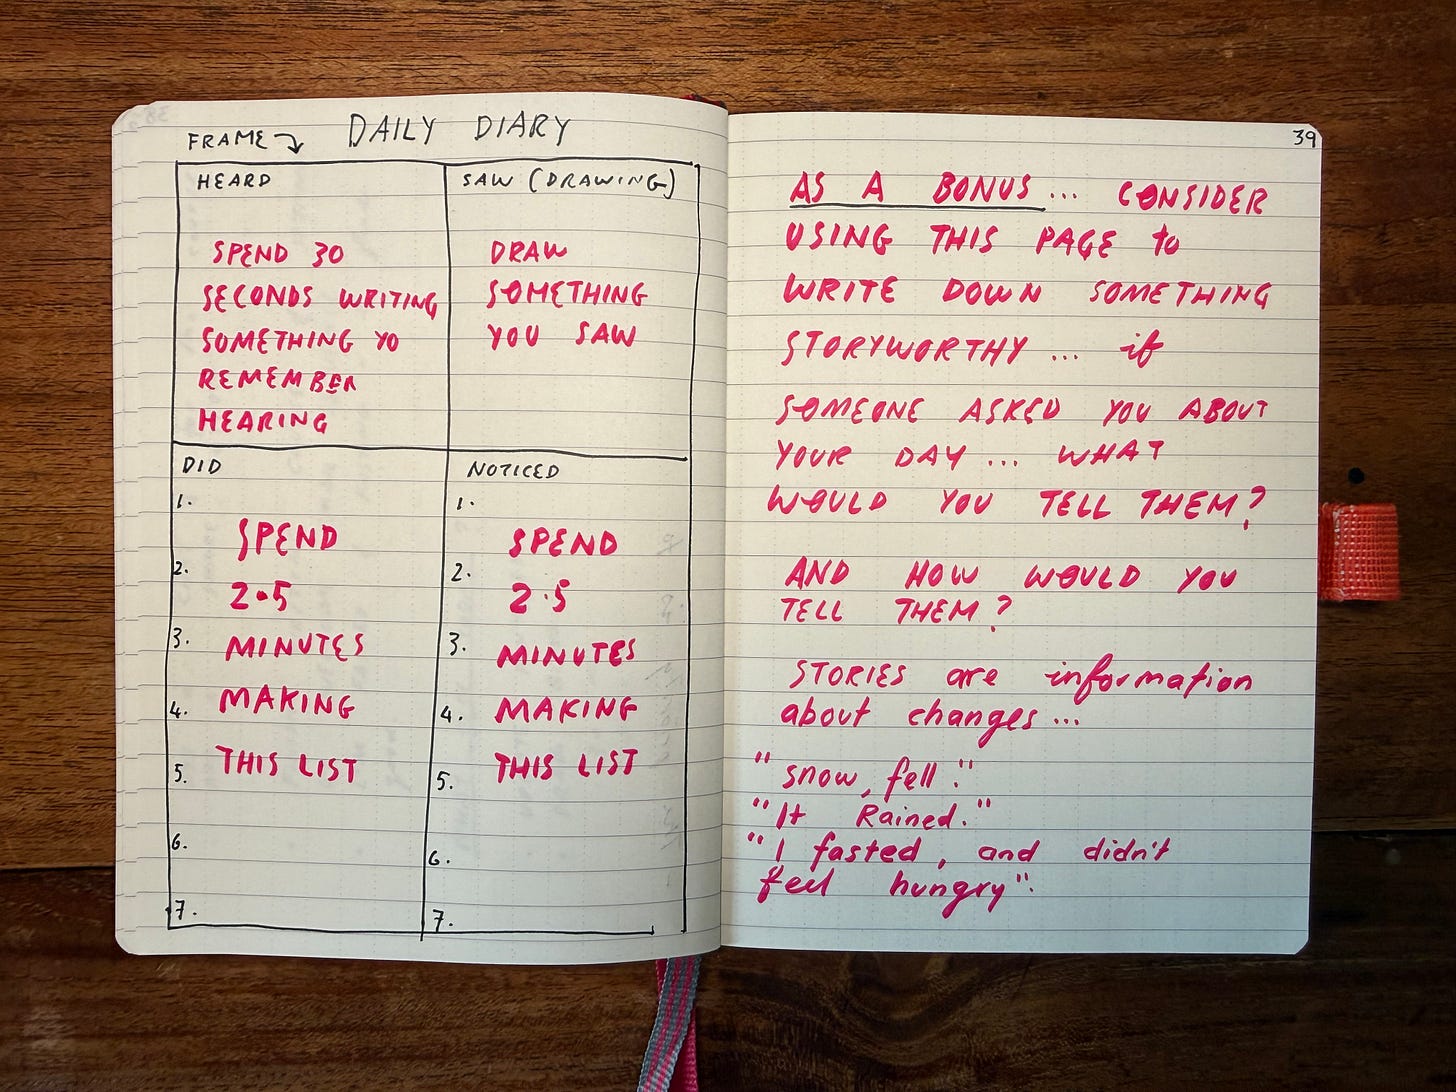 FRAME DAILY DIARY
HEARD
SPEND 30
SECONDS WRITING
SOMETHING YO
REMEMBER
HEARING
SAW (DRAWING)
DRAW
SOMETHING
YOU SAW
DID
1.
SPEND
2.
2.5
3.
MINUTES
4.
MAKING
5.
THIS LIST
6.
7.
NOTICED
1.
SPEND
2.
2.5
3.
MINUTES
4.
MAKING
5.
THIS LIST
6.
7.
39
AS A BONUS... CONSIDER
USING THIS PAGE to
WRITE DOWN SOMETHING
STORYWORTHY... if
SOMEONE ASKED YOU ABOUT
YOUR DAY... WHAT
WOULD YOU TELL THEM?
AND HOW WOULD YOU
TELL THEM?
STORIES are information
about changes...
"snow, fell."
"It Rained."
"I fasted, and didn't
feel hungry".